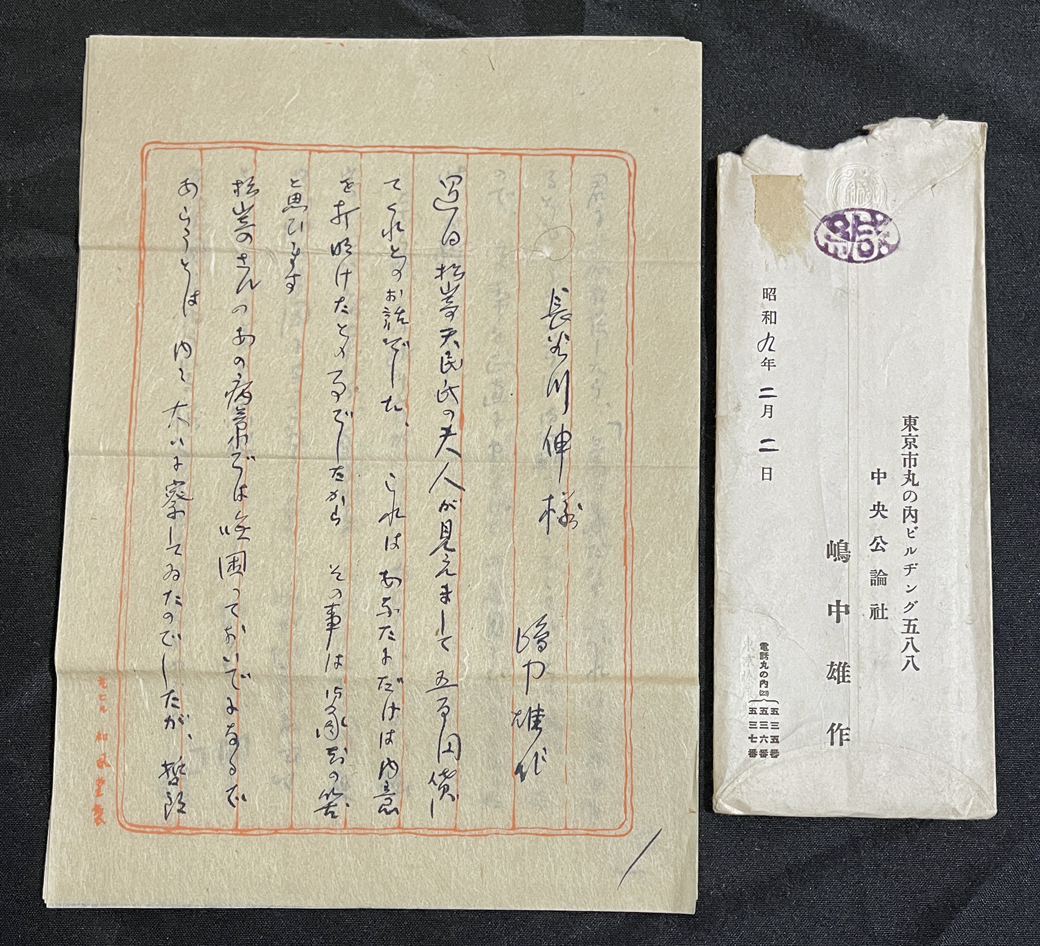 長谷川伸様
嶋中雄作
過日松崎天民氏の夫人が見えまして 五百円貸し
てくれとのお話でした、これはあなたにだけは内意
を打明けたとの事でしたから その事は御承知の筈
と思ひます
松崎さんのあの病気では嘸困つておいでになるで
あらうとは 内々大いに察してゐたのでしたが、哲郎
丸ビル 和風堂製
東京市丸の内ビルヂング五八八
中央公論社
嶋中雄作
電話丸の内(23)
五三五番
五三六番
五三七番
昭和九年二月二日
緘